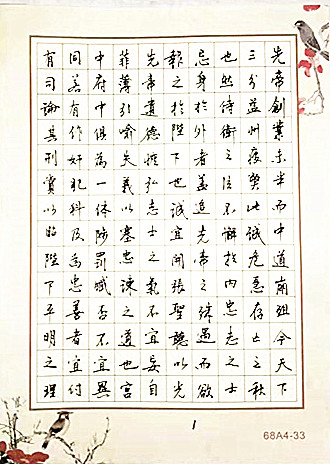 先帝創業未半而中道崩殂今天下
三分益州疲弊此誠危急存亡之秋
也然侍衛之臣不懈於內忠志之士
忘身於外者蓋追先帝之殊遇而欲
報之於陛下也誠宜開張聖聽以光
先帝遺德恢弘志士之氣不宜妄自
菲薄引喻失義以塞忠諫之道也宮
中府中俱為一体陟罰臧否不宜異
同若有作奸犯科及為忠善者宜付
有司論其刑賞以昭陛下平明之理
1
68A4-33